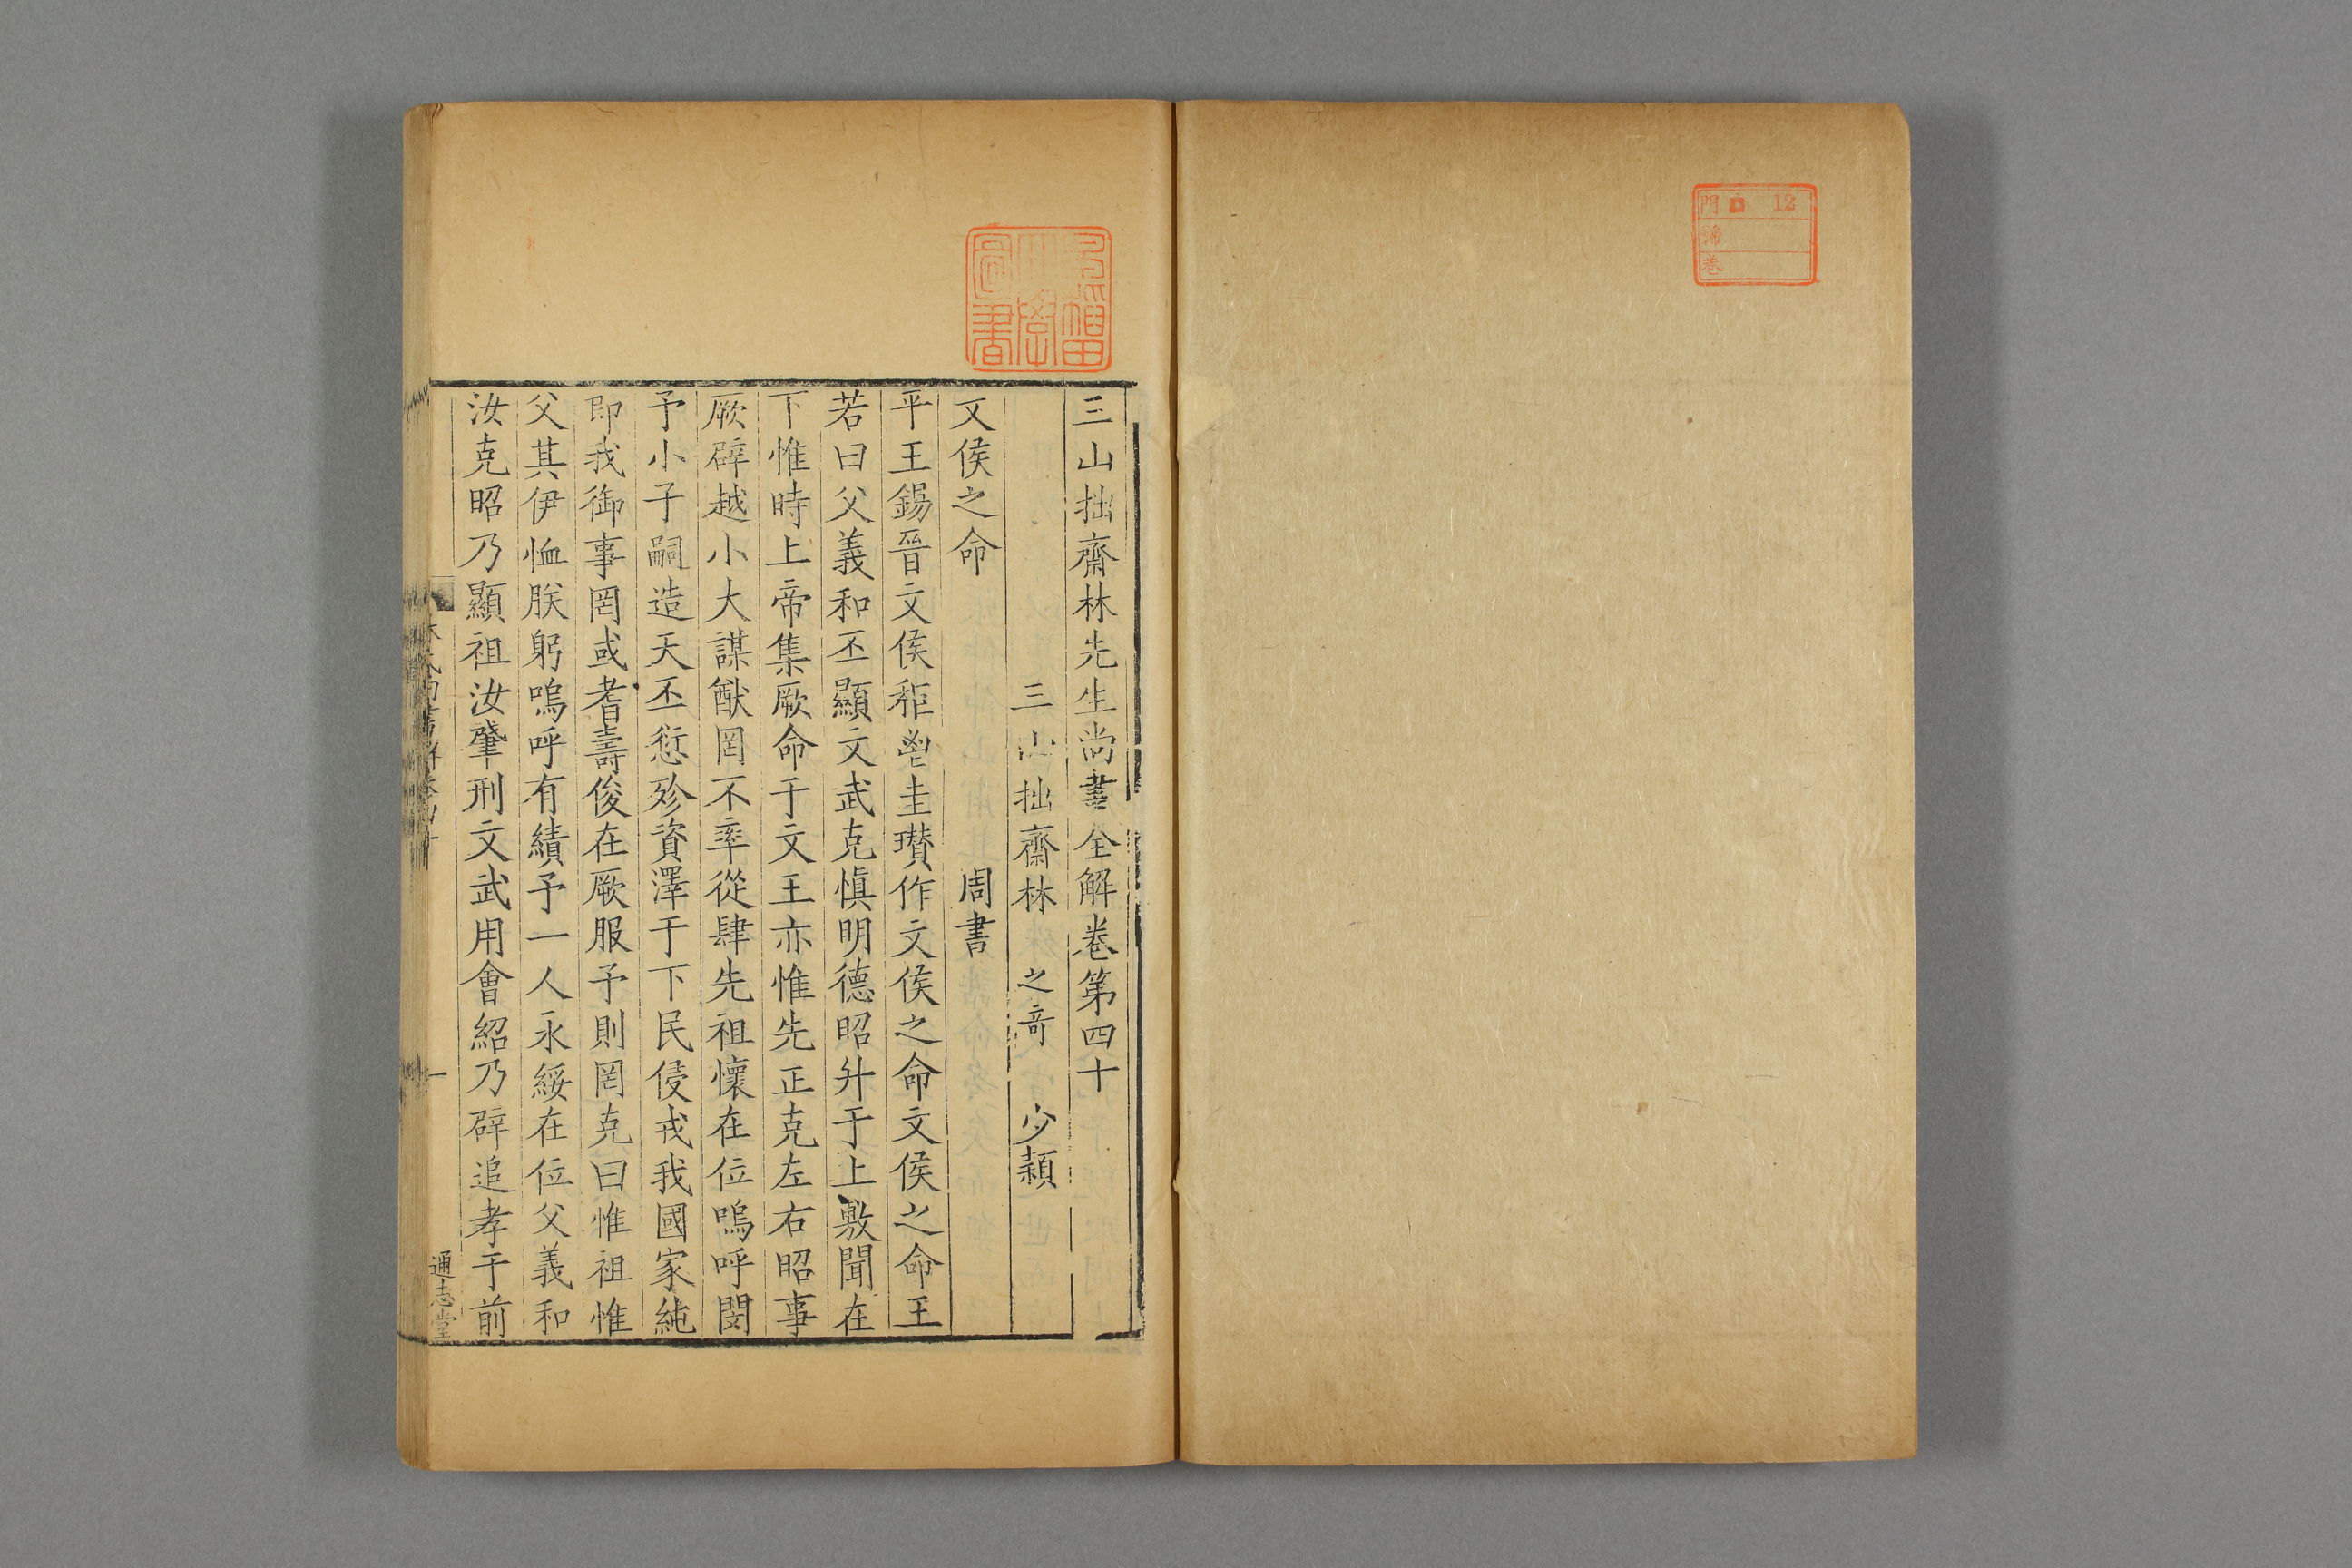 門 口 12
號
卷
三山拙齋林先生尚書全解卷第四十
三山拙齋林 之竒 少穎
文侯之命 周書
平王錫晉文侯秬鬯圭瓚作文侯之命文侯之命王
若曰父義和丕顯文武克慎明德昭升于上敷聞在
下惟時上帝集厥命于文王亦惟先正克左右昭事
厥辟越小大謀猷罔不率從肆先祖懷在位嗚呼閔
予小子嗣造天丕愆殄資澤于下民侵戎我國家純
即我御事罔或耆壽俊在厥服予則罔克曰惟祖惟
父其伊恤朕躬嗚呼有績予一人永綏在位父義和
汝克昭乃顯祖汝肇刑文武用會紹乃辟追孝于前
林氏尚書解卷四十
一
通志堂